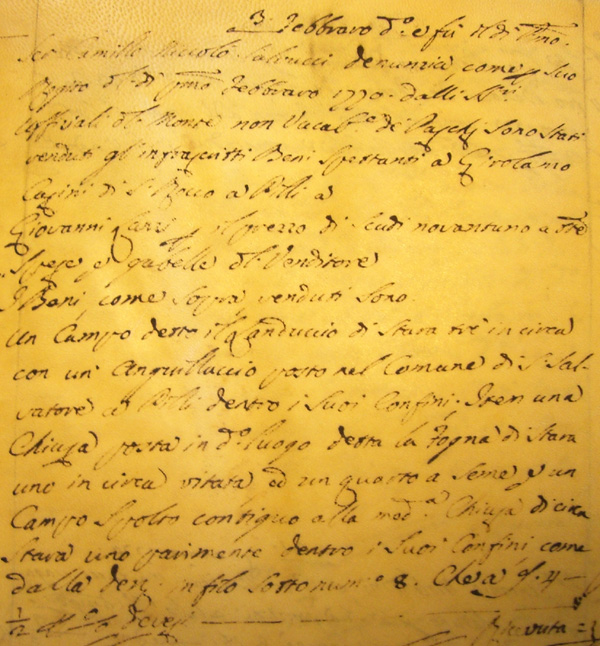 3. Febbraro d.o e fu il dì pmo.
Ser Camillo Niccolo Salvucci denunzia, come p suo
Rogito del dì pmo Febbraro 1770. dalli SS.ri
Offiziali del Monte non Vacab.e de Paschj sono stati
venduti gl'infrascritti Beni spettanti a Girolamo
Casini di S. Rocco a Pilli a
Giovanni p il prezzo di scudi novantuno a tte
spese e gabelle del Venditore
I Beni, come sopra venduti sono.
Un Campo detto il Landuccio di Stara tre in circa
con un' Anguillaccio posto nel Comune di S. Sal-
vatore a Pilli dentro i suoi Confini; Item una
Chiusa posta in d.o luogo detta la Fogna di Stara
uno in circa vitata ed un quarto a seme e un
Campo spolto contiguo alla med.a Chiusa di circa
Stara uno parimente dentro i suoi Confini come
dalla den. in filo sotto num.o 8. Che a
1/2
Ricevuta